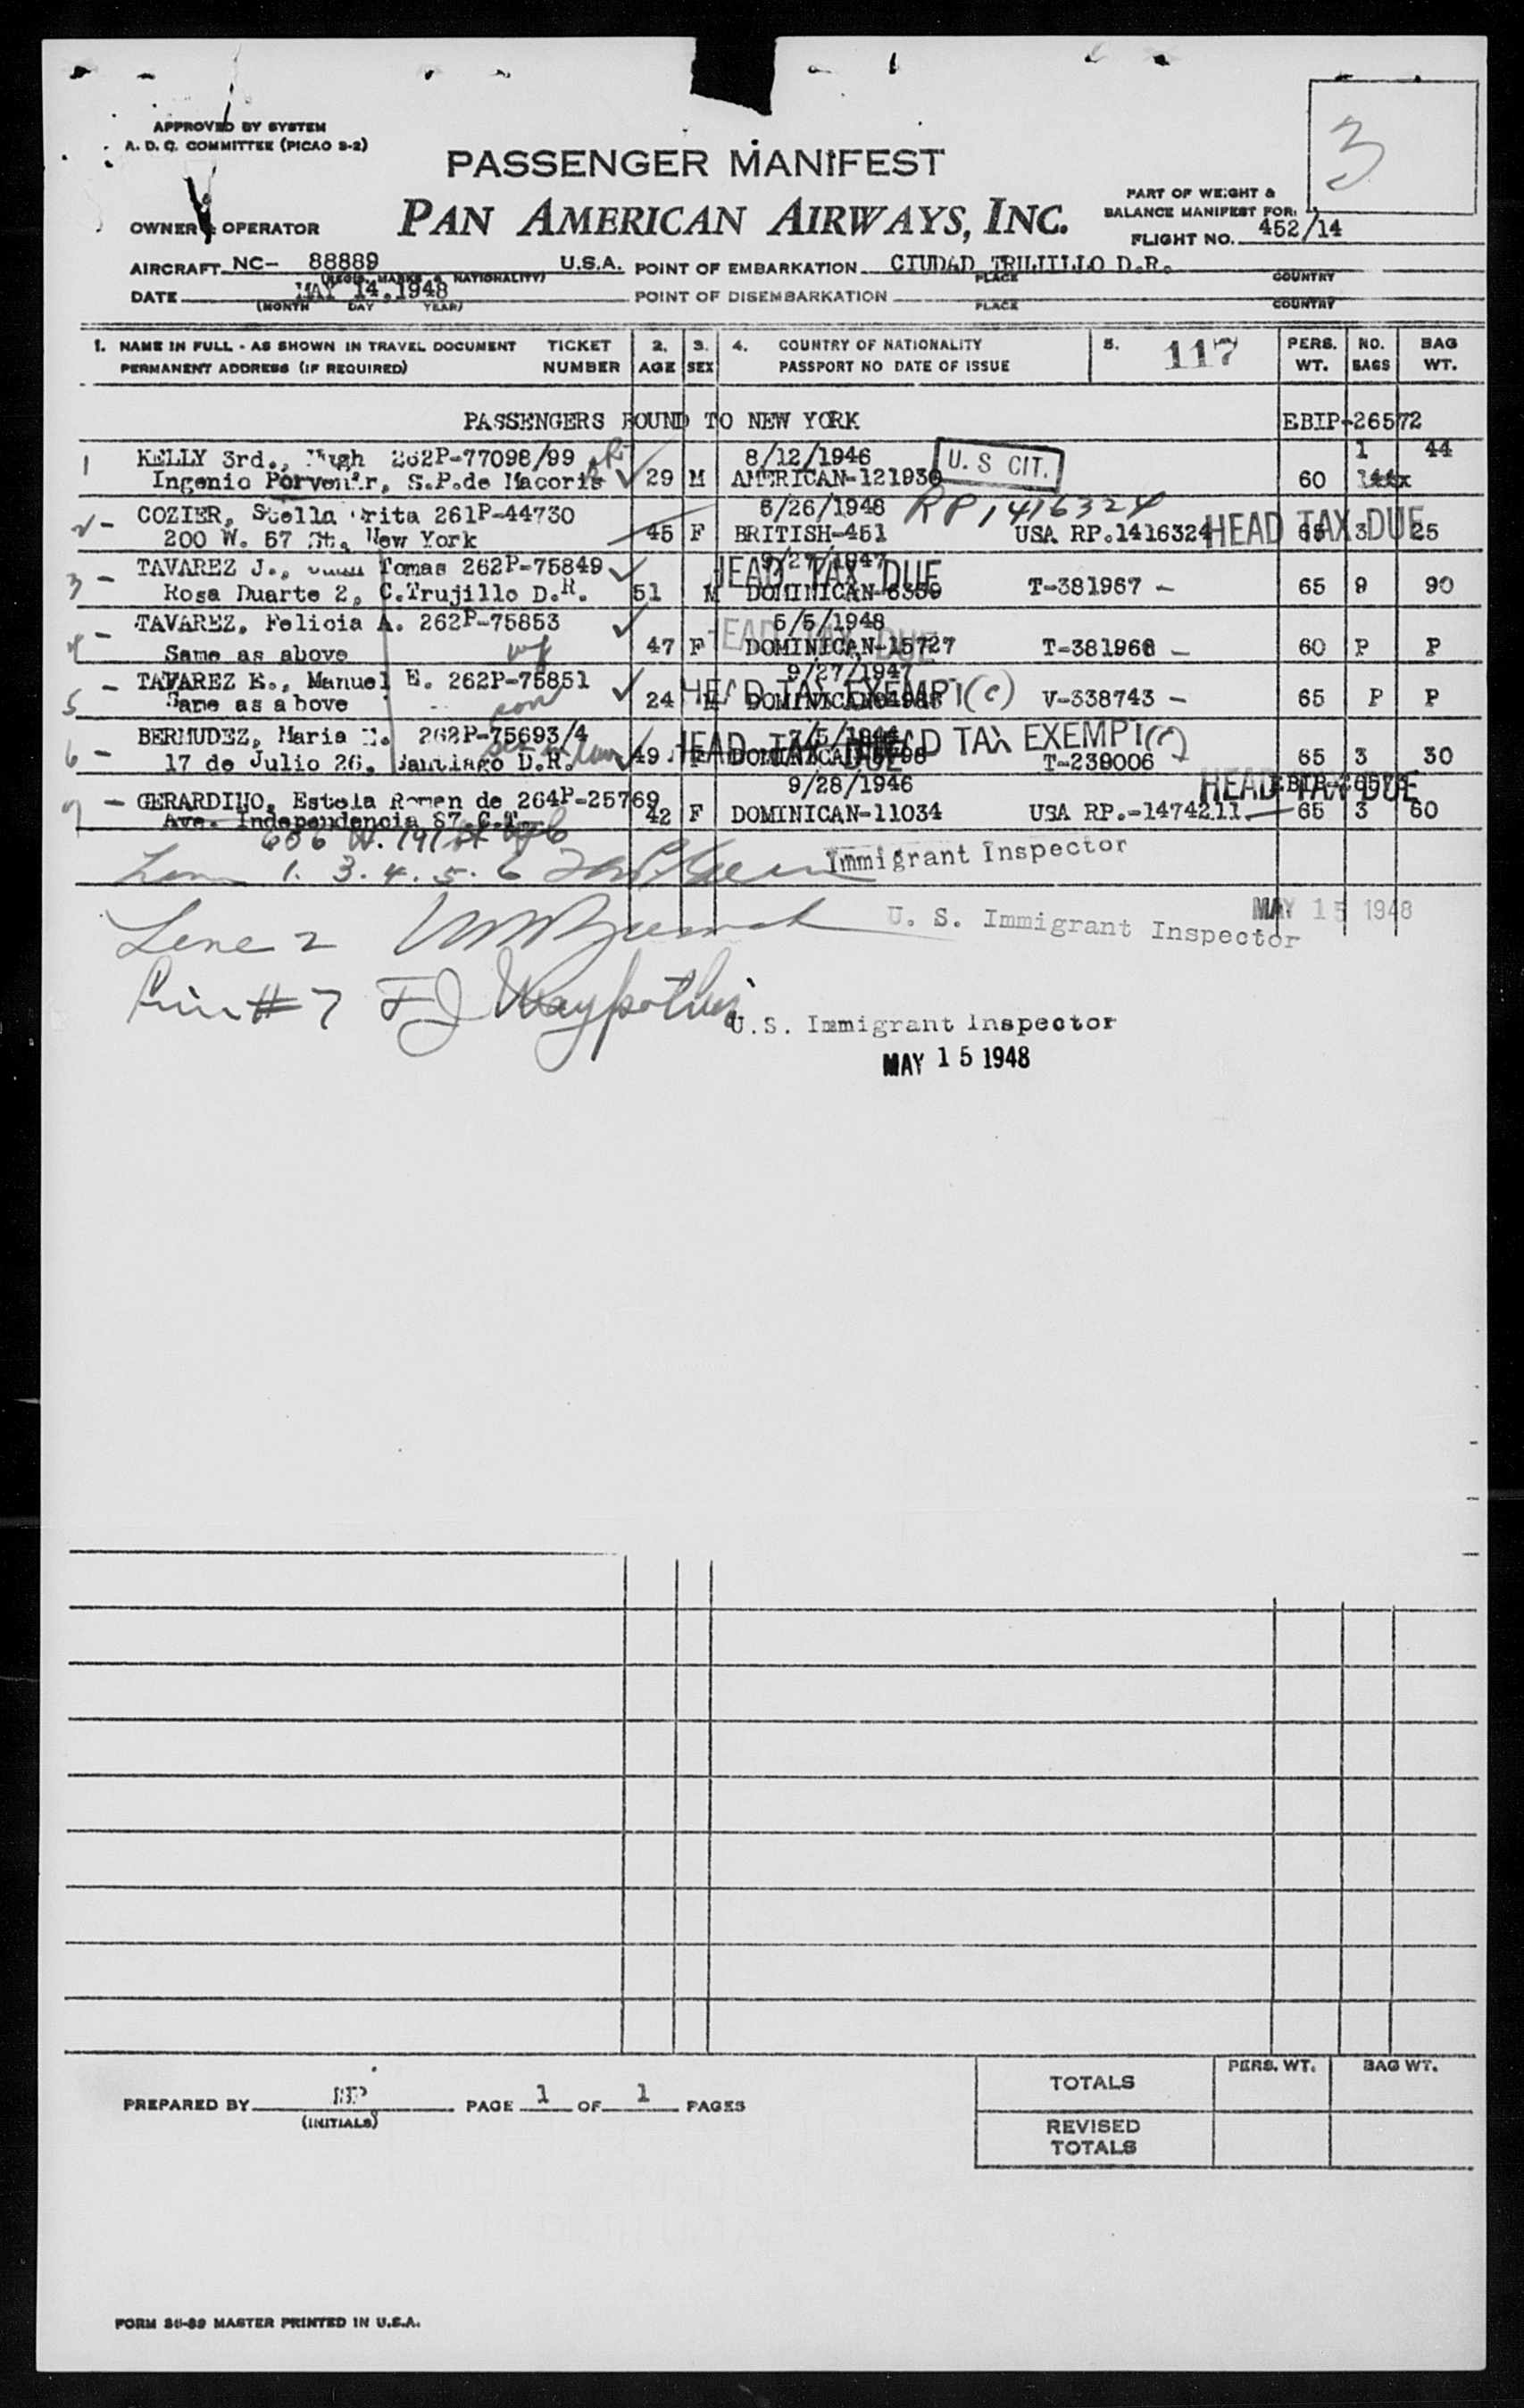 APPROVED BY SYSTEM
A. D. Q. COMMITTEE (PICAO S-2)
3
PASSENGER MANIFEST
PART OF WEIGHT &
BALANCE MANIFEST FOR:
OWNER & OPERATOR PAN AMERICAN AIRWAYS, INC.
FLIGHT NO. 452/14
AIRCRAFT NC- 88889 U.S.A. POINT OF EMBARKATION CIUDAD D.R.
(REGIS. MARKS & NATIONALITY) PLACE COUNTRY
DATE MAY 14, 1948 POINT OF DISEMBARKATION
(MONTH DAY YEAR) PLACE COUNTRY
1. NAME IN FULL - AS SHOWN IN TRAVEL DOCUMENT TICKET 2. 3. 4. COUNTRY OF NATIONALITY 5. 117 PERS. NO. BAG
PERMANENT ADDRESS (IF REQUIRED) NUMBER AGE SEX PASSPORT NO DATE OF ISSUE WT. BAGS WT.
PASSENGERS BOUND TO NEW YORK EBIP-26572
1 KELLY 3rd., Hugh 262P-77098/99 8/12/1946 U. S CIT. 1 44
Ingenio Porvenir, S.P.de Macoris 29 M AMERICAN-121930 60
2 - COZIER, Stella 261P-44730 6/26/1948 RP 1416324
200 W. 57 St. New York 45 F BRITISH-451 USA RP.1416324 HEAD TAX DUE 65 3 25
3 - TAVAREZ J., Tomas 262P-75849 9/27/1947 HEAD TAX DUE
Rosa Duarte 2, C.Trujillo D.R. 51 M DOMINICAN-6359 T-381967 - 65 9 90
4 - TAVAREZ, Felicia A. 262P-75853 5/5/1948 HEAD TAX DUE
Same as above wf 47 F DOMINICAN-15727 T-381968 - 60 P P
5 - TAVAREZ E., Manuel E. 262P-75851 9/27/1947 HEAD TAX EXEMPT (c)
Same as above son 24 M DOMINICAN V-338743 - 65 P P
6 - BERMUDEZ, Maria 262P-75693/4 HEAD TAX DUE HEAD TAX EXEMPT (c)
17 de Julio 26, Santiago D.R. 49 F DOMINICAN T-239006 65 3 30
7 - GERARDINO, Estela Roman de 264P-25769 9/28/1946 HEAD TAX DUE
Ave. Independencia 87 C.T. 42 F DOMINICAN-11034 USA RP.-1474211 65 3 60
606 W. 191 St
1. 3. 4. 5. 6 Immigrant Inspector
MAY 15 1948
Line 2 U. S. Immigrant Inspector
Line # 7 U.S. Immigrant Inspector
MAY 15 1948
PREPARED BY
(INITIALS)
PAGE 1 OF 1 PAGES
PERS. WT. BAG WT.
TOTALS
REVISED
TOTALS
FORM MASTER PRINTED IN U.S.A.